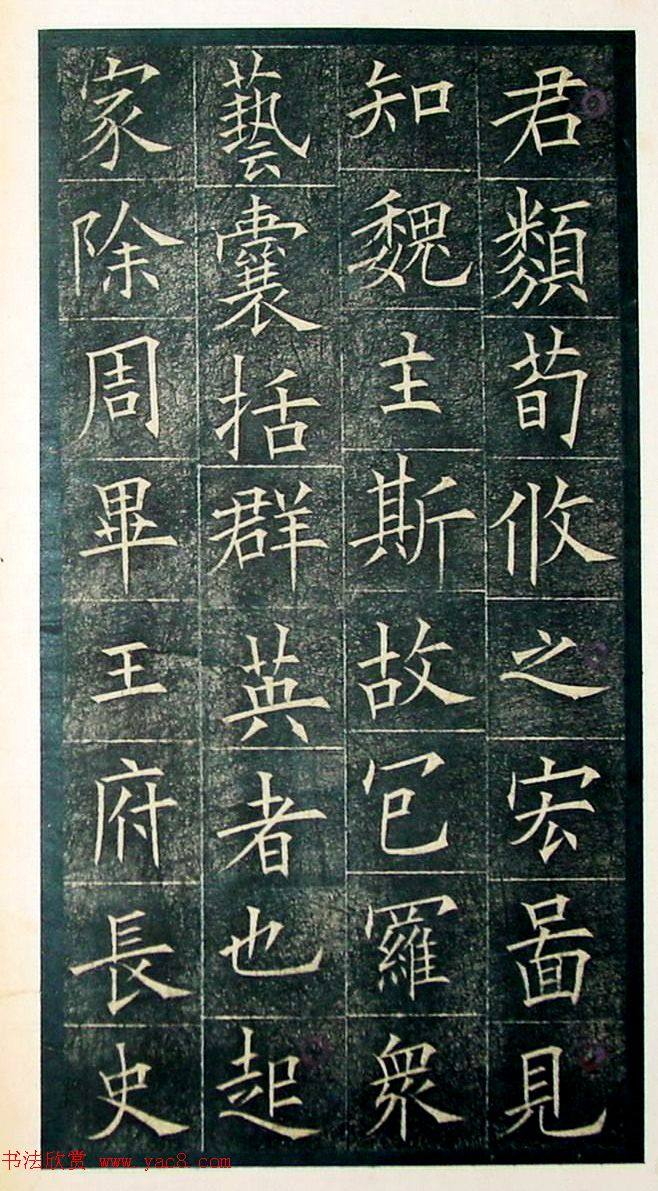 君類荀攸之宏啚見
知魏主斯故包羅衆
藝囊括群英者也起
家除周畢王府長史
书法欣赏 www.yac8.com